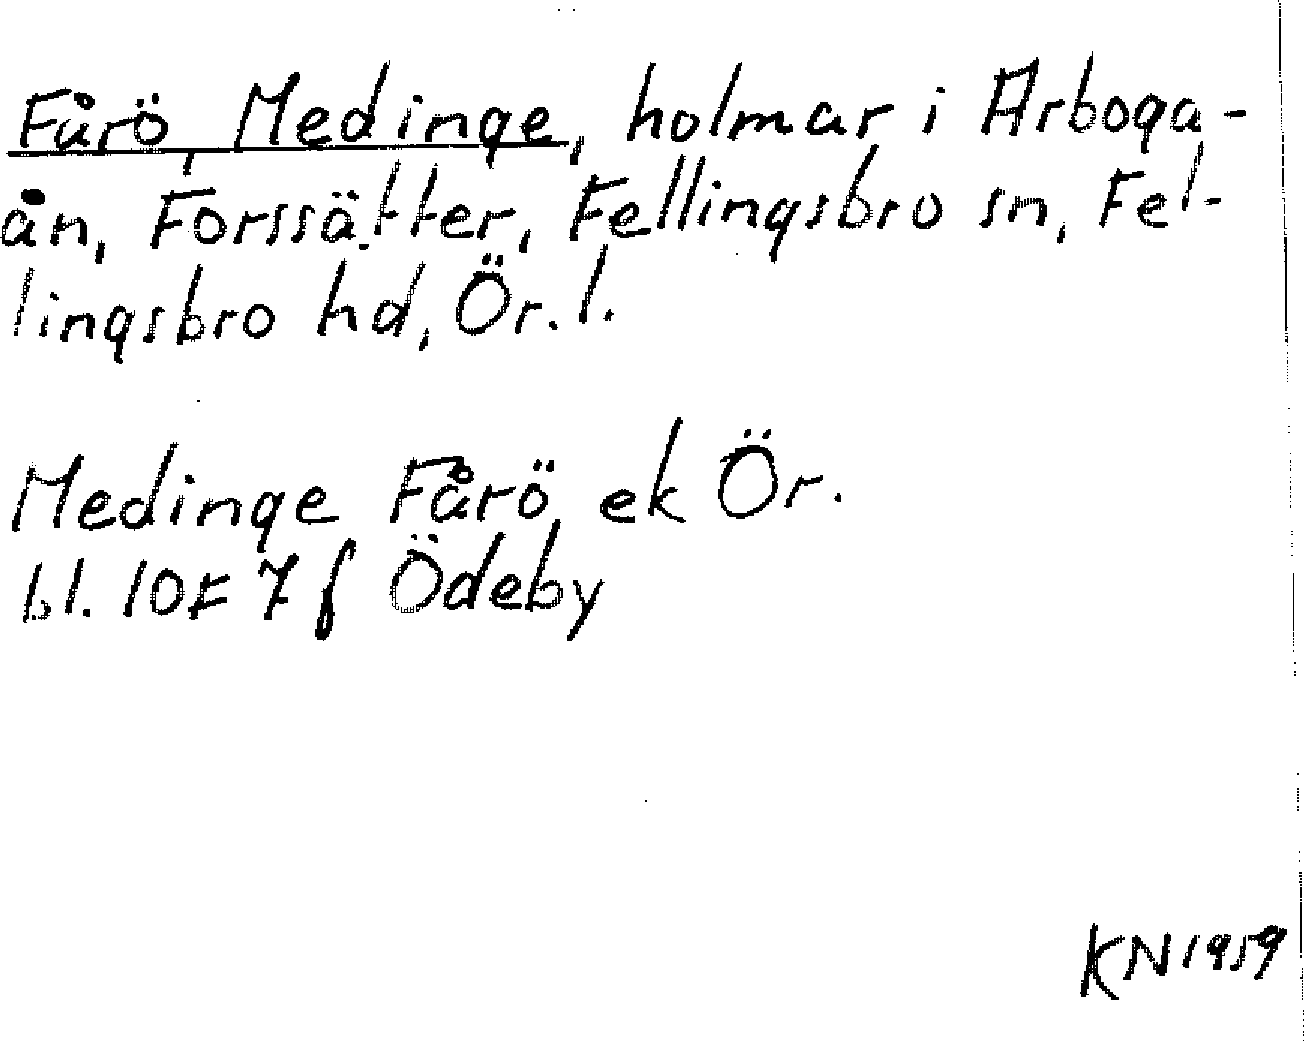 Fårö, Medinge, holmar i Arboga-
ån, Forssätter, Fellingsbro sn, Fel-
lingsbro hd, Ör. l.
Medinge Fårö, ek Ör.
bl. 10F 7 f Ödeby
KN 1959